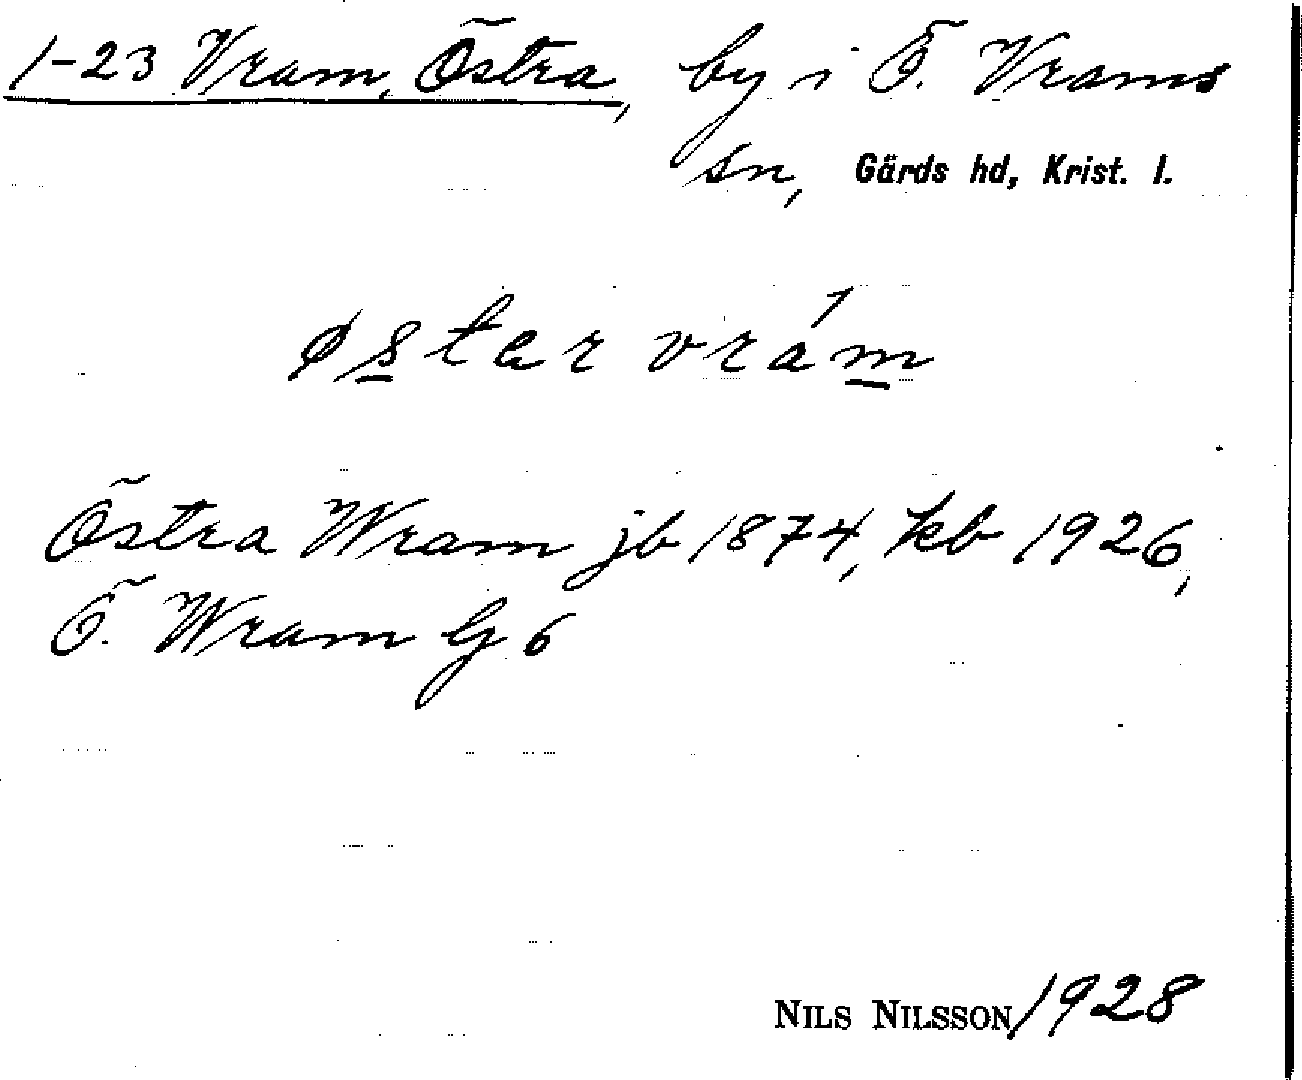 1-23 Vram, Östra, by i Ö. Vrams
sn, Gärds hd, Krist. l.
østar vrám
Östra Wram jb 1874, kb 1926,
Ö. Wram G 6
NILS NILSSON/1928